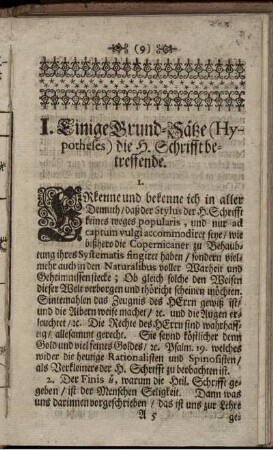 (9)
I. Einige Grund-Sätze (Hy-
potheses) die H. Schrifft be-
treffende.
1.
ERkenne und bekenne ich in aller
Demuth / daß der Stylus der H. Schrifft
keines weges popularis, und nur ad
captum vulgi accommodiret seye / wie
bißhero die Copernicaner zu Behaub-
tung ihres Systematis fingiret haben / sondern viel-
mehr auch in den Naturalibus voller Warheit und
Geheimnissen stecke; Ob gleich solche den Weisen
dieser Welt verborgen und thöricht scheinen möchten.
Sintemahlen das Zeugnis des HErrn gewiß ist /
und die Albern weise machet / ꝛc. und die Augen er-
leuchtet / ꝛc. Die Rechte des HErrn sind wahrhaff-
tig / allesammt gerecht. Sie seynd köstlicher denn
Gold und viel feines Goldes / ꝛc. Psalm. 19. welches
wider die heutige Rationalisten und Spinosisten /
als Verkleinere der H. Schrifft zu beobachten ist.
2. Der Finis ů, warum die Heil. Schrifft ge-
geben / ist der Menschen Seligkeit. Dann was
uns darinnen vorgeschrieben / das ist uns zur Lehre
A 5 ge-